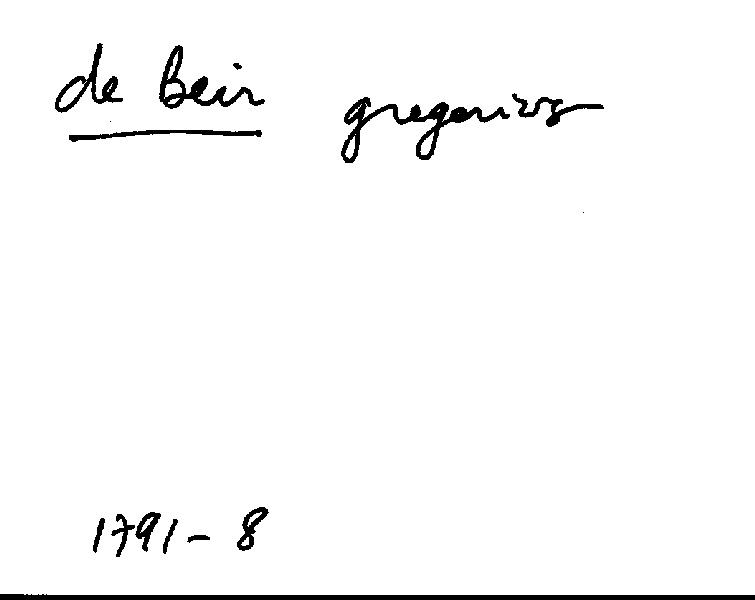 de Beir gregorius
1791-8